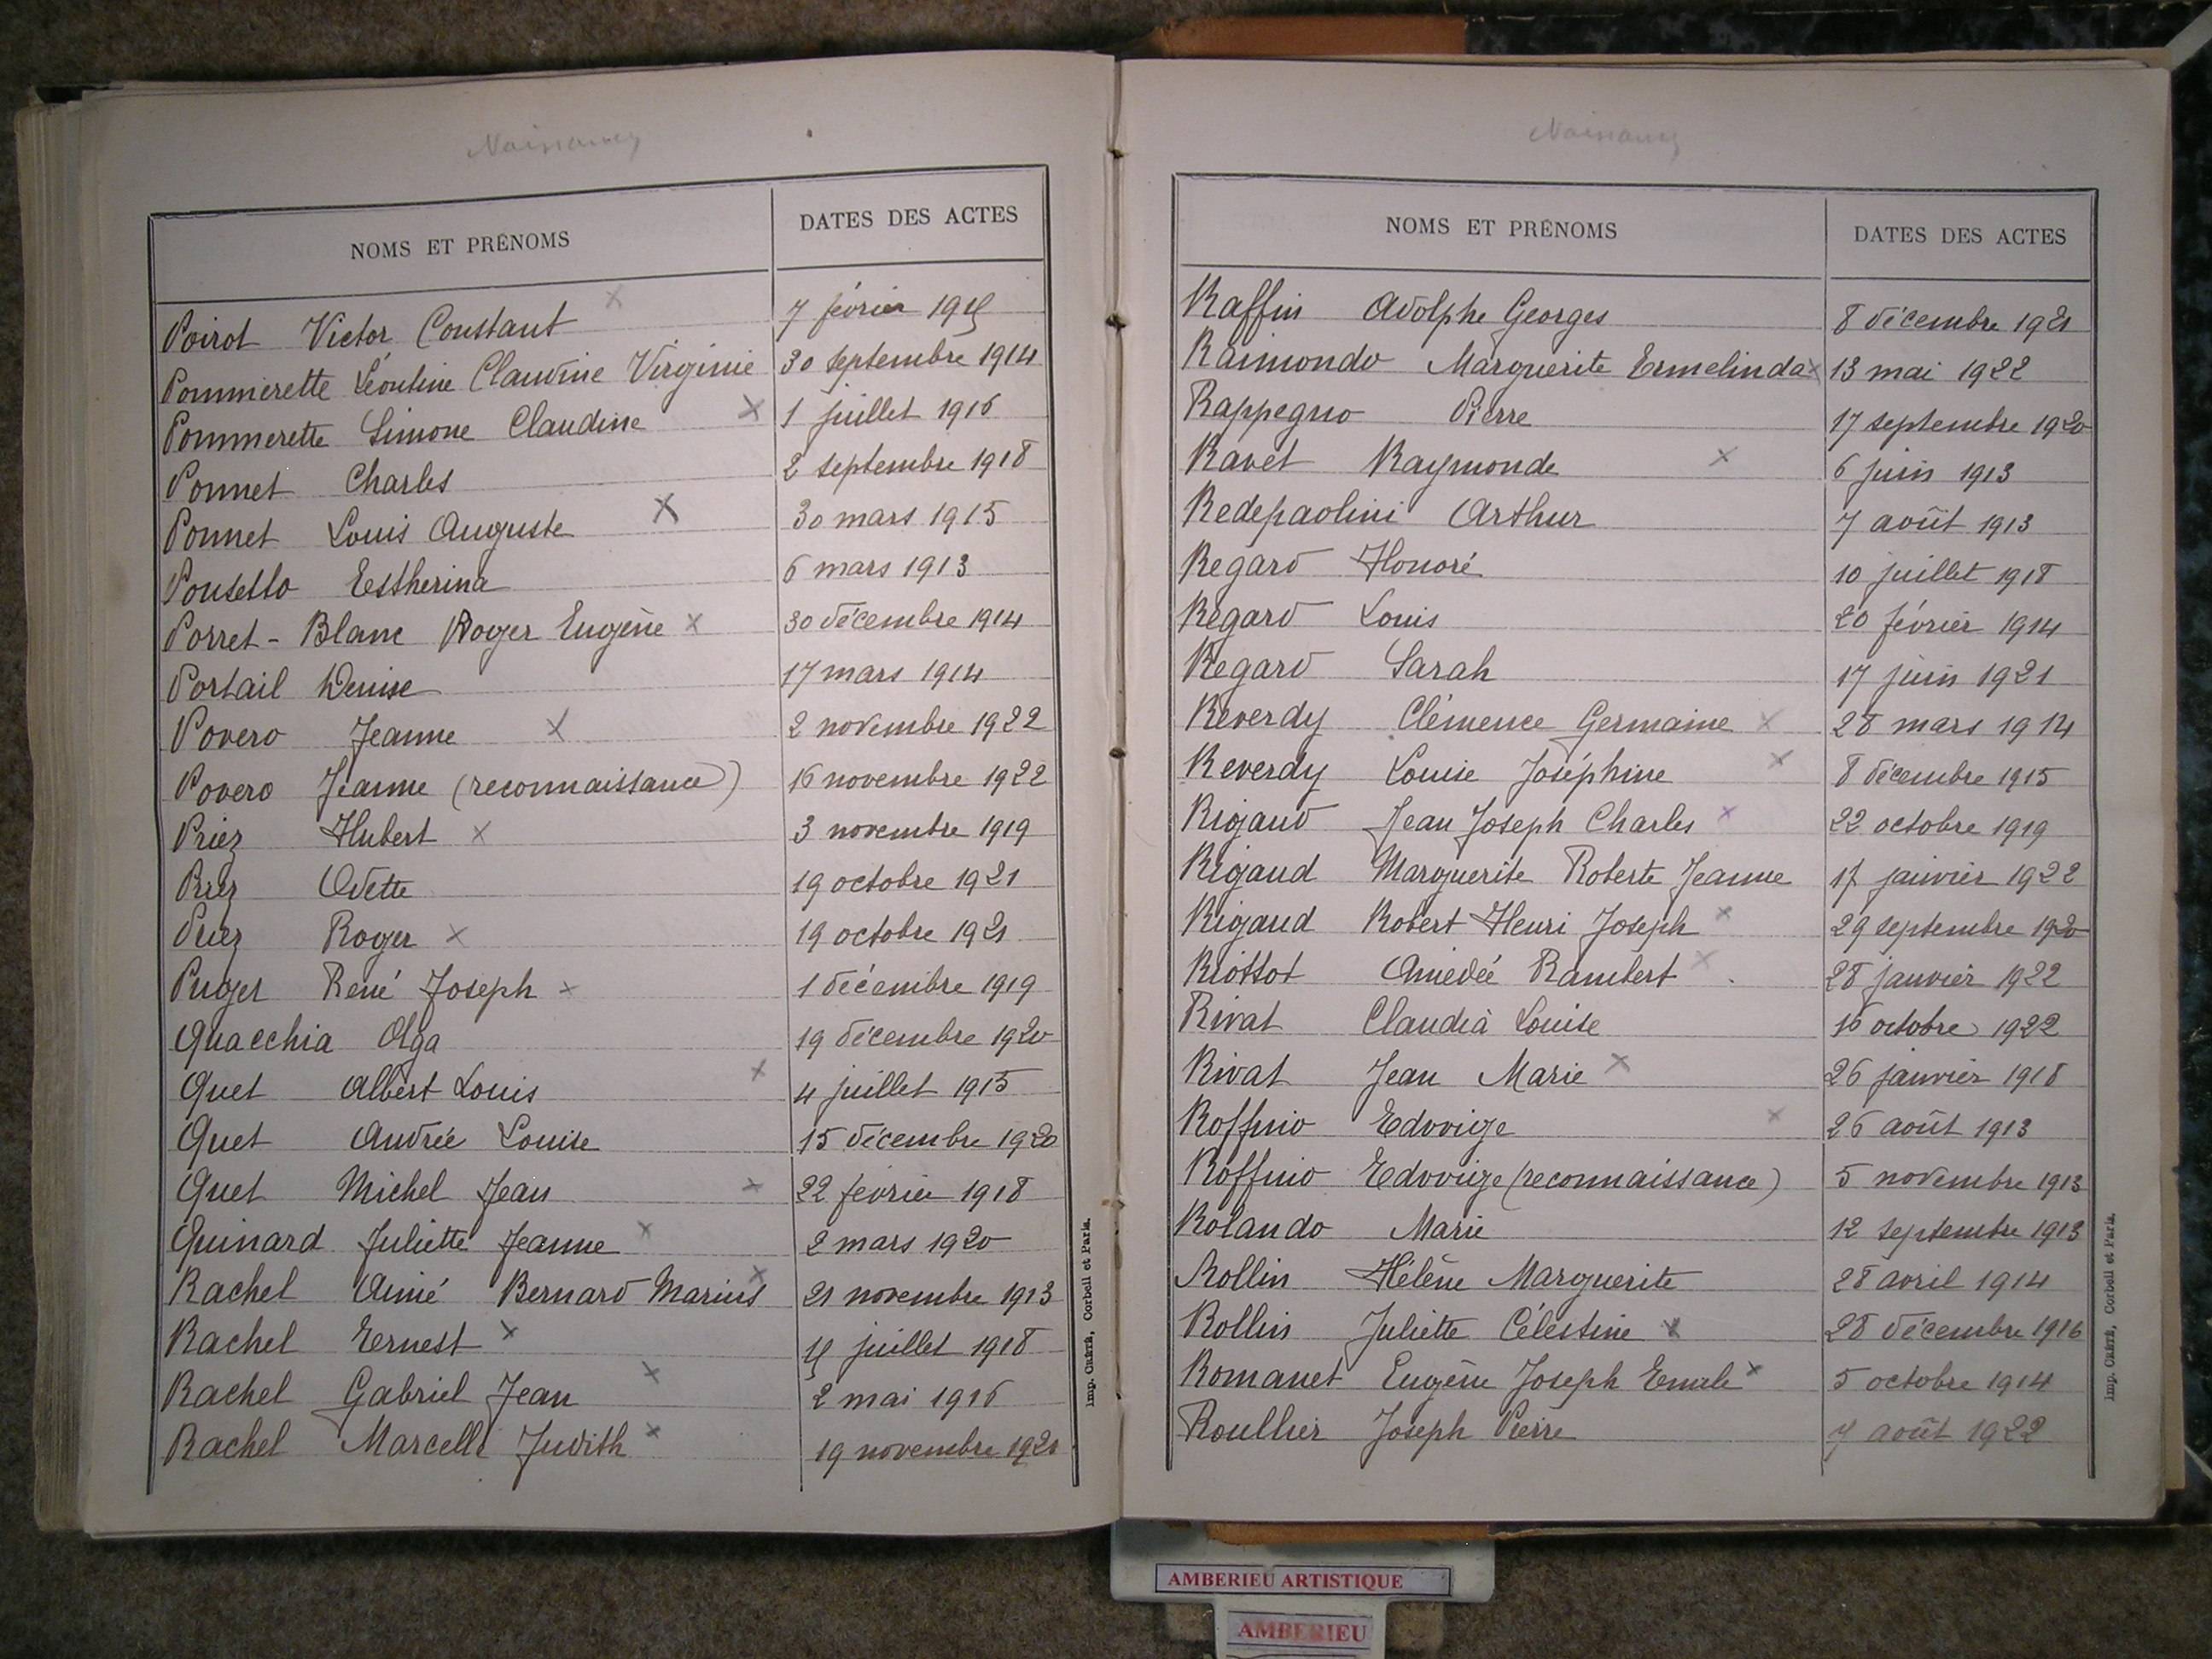 Naissances
NOMS ET PRÉNOMS DATES DES ACTES
Poirot Victor Constant 7 février 1915
Pommerette Léontine Claudine Virginie 30 septembre 1914
Pommerette Simone Claudine x 1 juillet 1916
Ponnet Charles 2 septembre 1918
Ponnet Louis Auguste x 30 mars 1915
Ponsetto Esstherina 6 mars 1913
Porret-Blanc Roger Eugène x 30 décembre 1914
Portail Denise 17 mars 1914
Povero Jeanne x 2 novembre 1922
Povero Jeanne (reconnaissance) 16 novembre 1922
Priez Hubert x 3 novembre 1919
Priez Odette 19 octobre 1921
Priez Roger x 19 octobre 1921
Puget René Joseph x 1 décembre 1919
Quacchia Olga 19 décembre 1920
Quet Albert Louis x 4 juillet 1915
Quet Andrée Louise 15 décembre 1920
Quet Michel Jean x 22 février 1918
Guinard Juliette Jeanne x 2 mars 1920
Rachel Aimé Bernard Marius x 21 novembre 1913
Rachel Ernest x juillet 1918
Rachel Gabriel Jean x 2 mai 1916
Rachel Marcelle Judith x 19 novembre 1921
Imp. Crété, Corbeil et Paris.
Naissances
NOMS ET PRÉNOMS DATES DES ACTES
Raffin Adolphe Georges 8 décembre 1921
Raimondo Marguerite Ermelinda x 13 mai 1922
Rappegno Pierre 17 septembre 1920
Ravet Raymonde x 6 juin 1913
Redepaolini Arthur 7 août 1913
Regard Honoré 10 juillet 1918
Regard Louis 20 février 1914
Regard Sarah 17 juin 1921
Reverdy Clémence Germaine x 28 mars 1914
Reverdy Louise Joséphine x 8 décembre 1915
Rigaud Jean Joseph Charles x 22 octobre 1919
Rigaud Marguerite Roberte Jeanne 17 janvier 1922
Rigaud Robert Henri Joseph x 29 septembre 1920
Riottot Amédée Rambert x 28 janvier 1922
Rivat Claudia Louise 16 octobre 1922
Rivat Jean Marie x 26 janvier 1918
Roffino Edovige x 26 août 1913
Roffino Edovige (reconnaissance) 5 novembre 1913
Rolando Marie 12 septembre 1913
Rollin Hélène Marguerite 28 avril 1914
Rollin Juliette Célestine x 28 décembre 1916
Romanet Eugène Joseph Emile x 5 octobre 1914
Roullier Joseph Pierre 7 août 1922
Imp. Crété, Corbeil et Paris.
AMBERIEU ARTISTIQUE
AMBERIEU